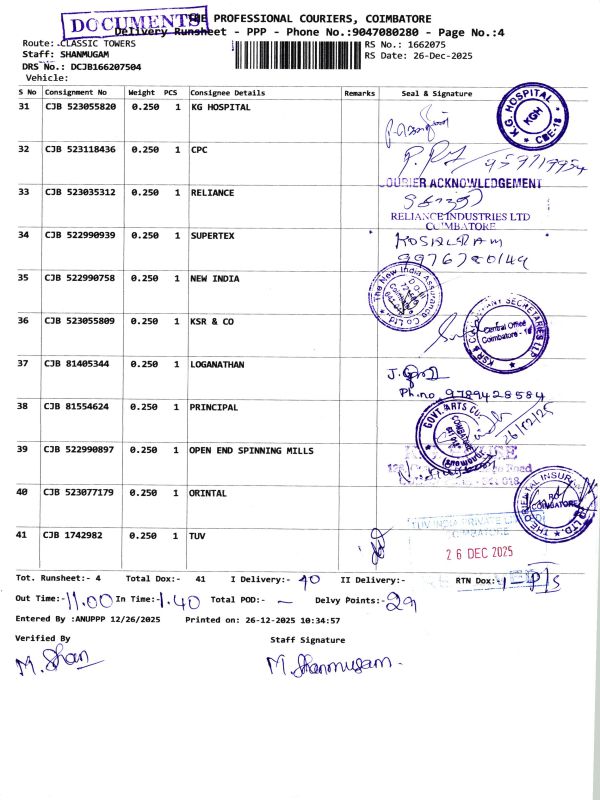 DOCUMENTS
THE PROFESSIONAL COURIERS, COIMBATORE
Delivery Runsheet - PPP - Phone No.:9047080280 - Page No.:4
Route: CLASSIC TOWERS
RS No.: 1662075
Staff: SHANMUGAM
RS Date: 26-Dec-2025
DRS No.: DCJB166207504
Vehicle:
S No Consignment No Weight PCS Consignee Details Remarks Seal & Signature
31 CJB 523055820 0.250 1 KG HOSPITAL
K.G. HOSPITAL KGH CBE-18
32 CJB 523118436 0.250 1 CPC
COURIER ACKNOWLEDGEMENT
33 CJB 523035312 0.250 1 RELIANCE
RELIANCE INDUSTRIES LTD
COIMBATORE
34 CJB 522990939 0.250 1 SUPERTEX
9976780149
35 CJB 522990758 0.250 1 NEW INDIA
The New India Assurance Co Ltd.
36 CJB 523055809 0.250 1 KSR & CO
KSR & COMPANY SECRETARIES LLP
Central Office
Coimbatore - 18
37 CJB 81405344 0.250 1 LOGANATHAN
Ph.no 9789428584
38 CJB 81554624 0.250 1 PRINCIPAL
GOVT. ARTS CO
COIMBATORE
26/12/25
39 CJB 522990897 0.250 1 OPEN END SPINNING MILLS
Road
40 CJB 523077179 0.250 1 ORINTAL
THE ORIENTAL INSURANCE CO LTD
RO
COIMBATORE
41 CJB 1742982 0.250 1 TUV
TUV INDIA PRIVATE LIMITED
COIMBATORE
26 DEC 2025
Tot. Runsheet:- 4 Total Dox:- 41 I Delivery:- 40 II Delivery:- RTN Dox:- 1 - P/S
Out Time:- 11.00 In Time:- 1.40 Total POD:- - Delvy Points:- 29
Entered By :ANUPPP 12/26/2025 Printed on: 26-12-2025 10:34:57
Verified By Staff Signature
M. Shan M. Shanmugam.